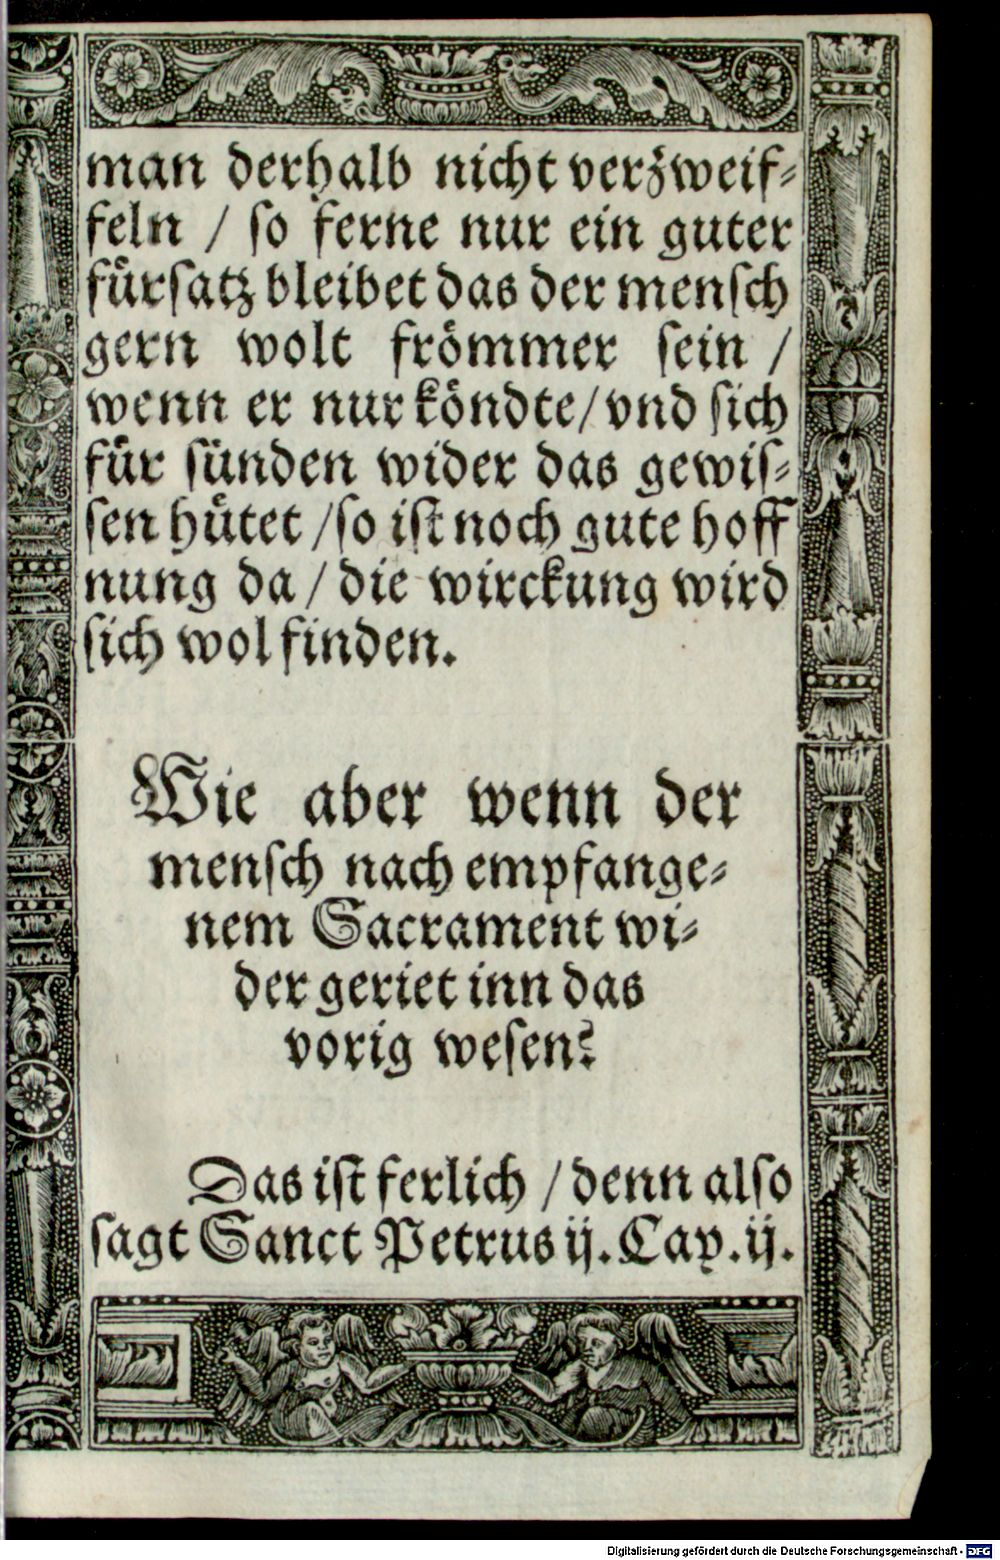 man derhalb nicht verzweif⸗
feln / so ferne nur ein guter
fürsatz bleibet das der mensch
gern wolt frömmer sein /
wenn er nur köndte / vnd sich
für sünden wider das gewis⸗
sen hütet / so ist noch gute hoff
nung da / die wirckung wird
sich wol finden.
Wie aber wenn der
mensch nach empfange⸗
nem Sacrament wi⸗
der geriet inn das
vorig wesen?
Das ist ferlich / denn also
sagt Sanct Petrus ij. Cap. ij.
Digitalisierung gefördert durch die Deutsche Forschungsgemeinschaft - DFG